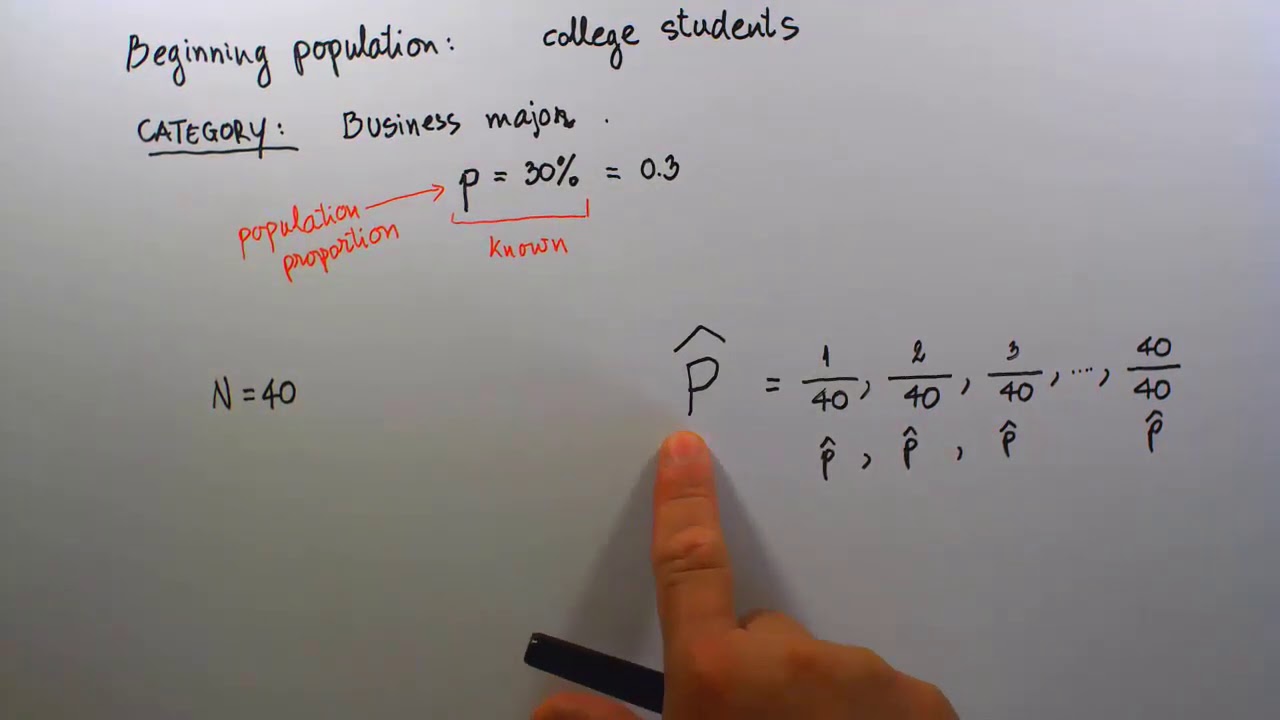 Beginning population: college students
CATEGORY: Business major.
p = 30% = 0.3
population proportion
known
N = 40
P̂ = 1/40, 2/40, 3/40, ...., 40/40
p̂, p̂, p̂ p̂